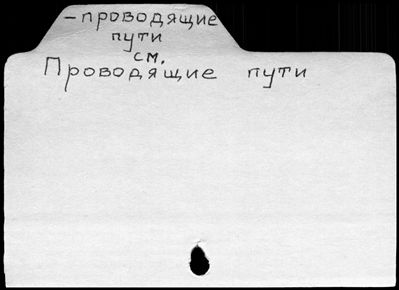 – проводящие
пути
см.
Проводящие пути